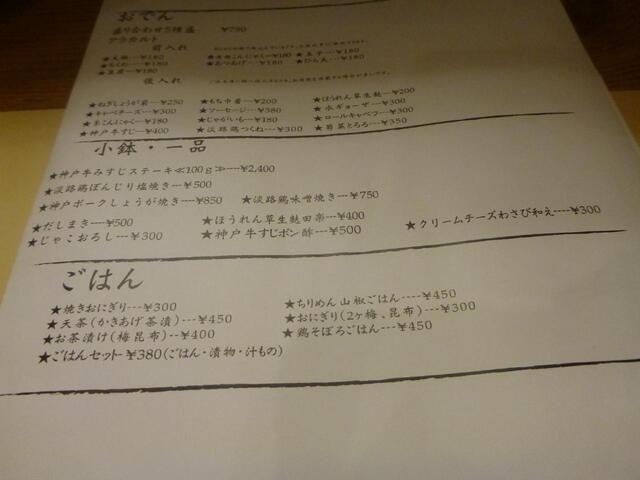 おでん
盛り合わせ5種盛 ¥790
アラカルト
前入れ
★大根---¥180 ★玉子---¥180
★ちくわ---¥180 ★厚あげ---¥180 ★ひら天---¥180
★豆腐---¥180
後入れ
★ねぎしょうが袋---¥250 ★もち巾着---¥200 ★ほうれん草生麩---¥200
★キャベチーズ---¥300 ★ソーセージ---¥380 ★水ギョーザ---¥300
★生こんにゃく---¥180 ★じゃがいも---¥180 ★ロールキャベツ---¥300
★神戸牛すじ---¥400 ★淡路鶏つくね---¥300 ★菊菜とろろ---¥350
小鉢・一品
★神戸牛みすじステーキ≪100g≫---¥2,400
★淡路鶏ぼんじり塩焼き---¥500
★神戸ポークしょうが焼き---¥850 ★淡路鶏味噌焼き---¥750
★だしまき---¥500 ★ほうれん草生麩田楽---¥400 ★クリームチーズわさび和え----¥300
★じゃこおろし---¥300 ★神戸牛すじポン酢---¥500
ごはん
★焼きおにぎり---¥300 ★ちりめん山椒ごはん----¥450
★天茶(かきあげ茶漬)---¥450 ★おにぎり(2ヶ梅、昆布)---¥300
★お茶漬け(梅昆布)---¥400 ★鶏そぼろごはん---¥450
★ごはんセット-¥380(ごはん・漬物・汁もの)